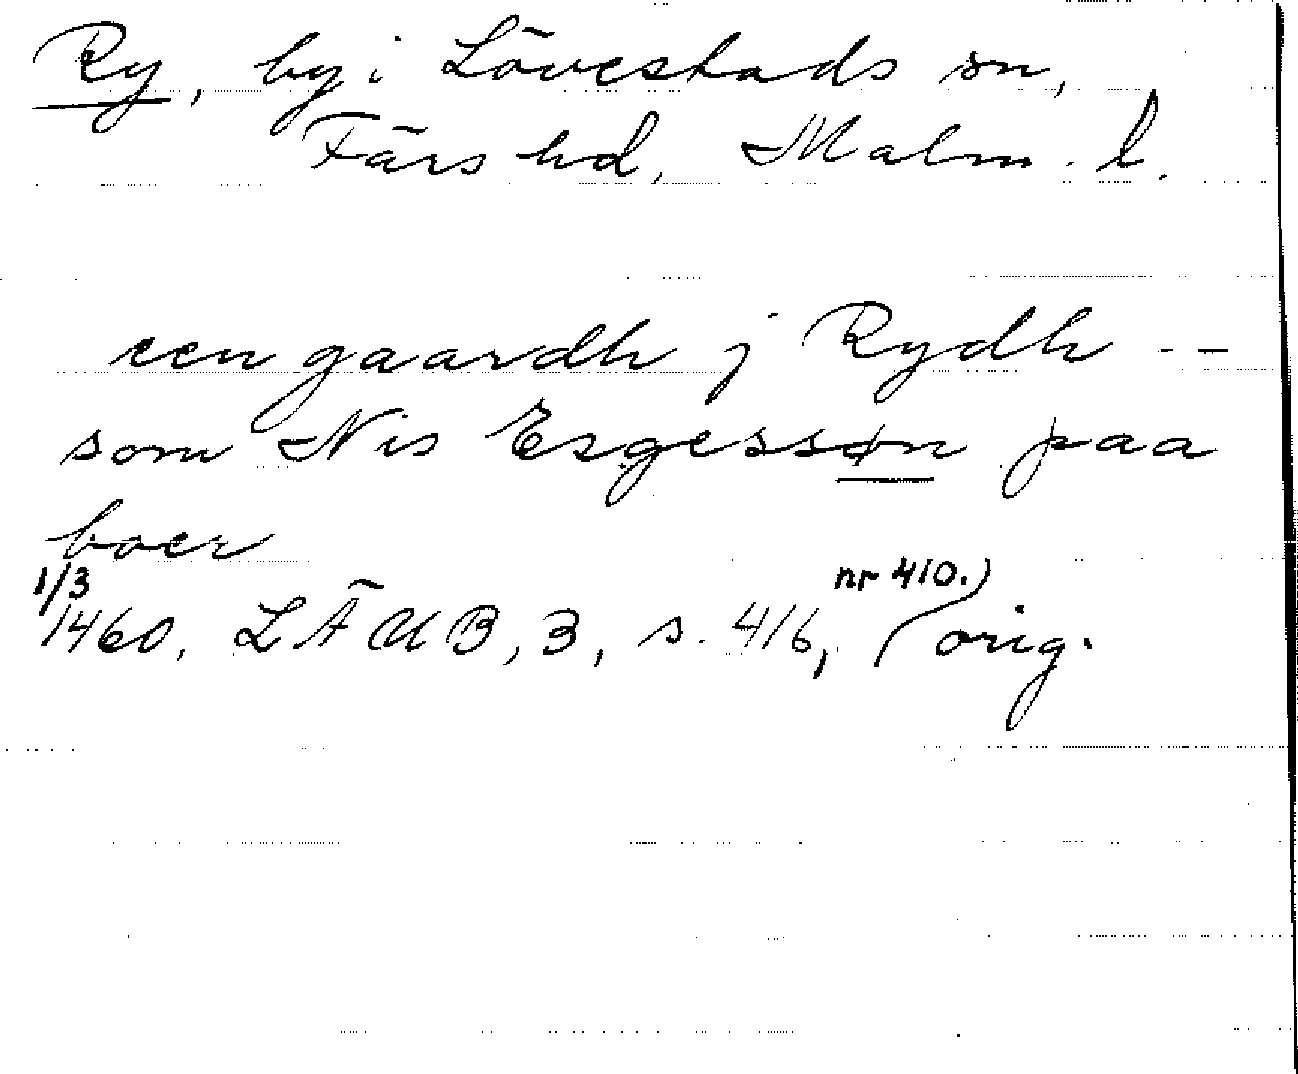 Ry, by i Lövestads sn,
Färs hd, Malm. l.
een gaardh j Rydh --
som Nis Esgessøn paa
boer
1/3 1460, LÄUB, 3, s. 416, nr 410. (orig.